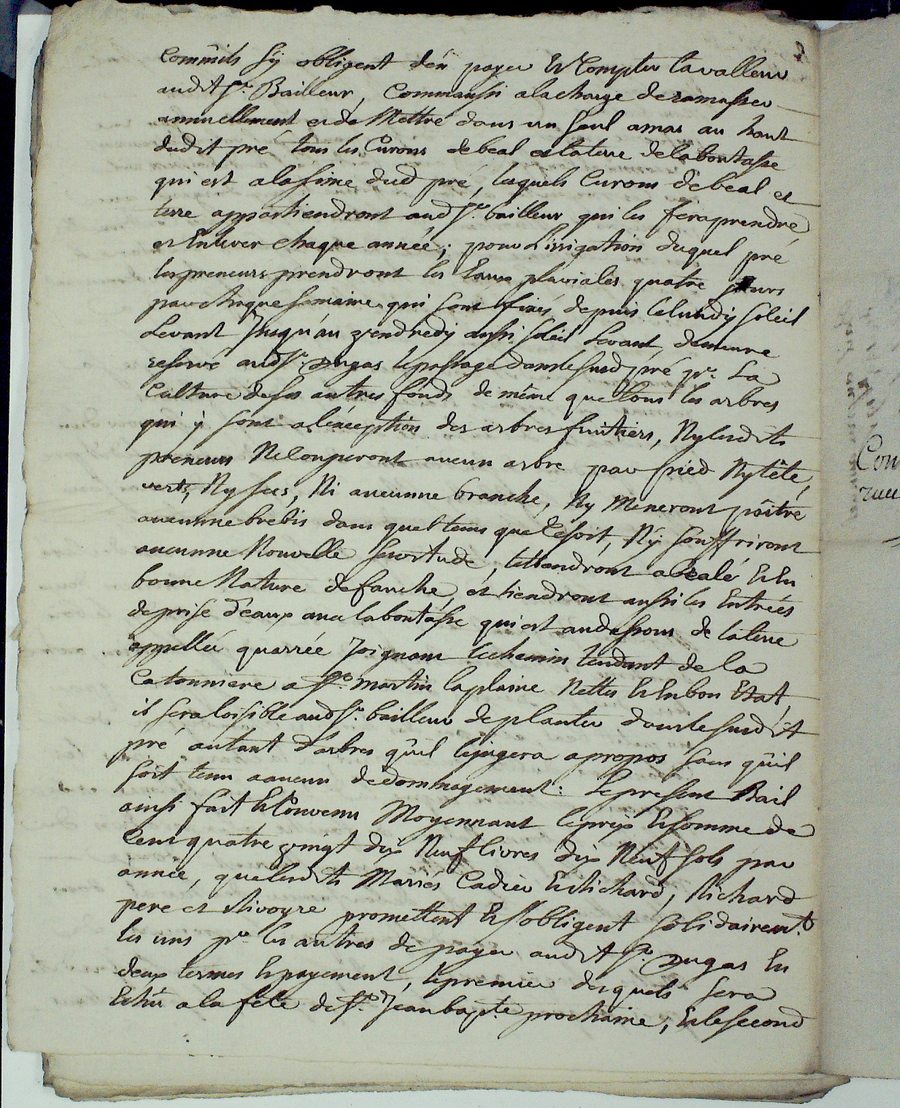 commits s'y obligent d'en payer et compter la valleur
audit Sr. Bailleur, Comm'aussi a la charge de ramasser
annuellement et de Mettre dans un seul amas au haut
dudit pré tous les Curons de béal et la terre de la boutasse
qui est a la sime dud pré, lesquels Curons de béal et
terre appartiendront aud Sr. bailleur qui les fera prendre
et Enlever chaque année; pour L'irrigation duquel pré
les preneurs prendront les Eaux pluviales quatre jours
par chaque semaine qui sont fixés depuis le lundy soleil
Levant Jusqu'au vendredy aussi soleil Levant, demeure
reservé aud Sr. Dugas le passage dans le susd pré pr. La
Culture de ses autres fonds de même que tous les arbres
qui y sont a l'éxception des arbres fruitiers, Ny lesdits
preneurs Ne Couperont aucun arbre par pied Ny tête,
verts, Ny secs, Ni aucunne branche, Ny Meneront poître
aucunne brebis dans quel tems que ce soit, Ny souffriront
aucunne Nouvelle servitude, le tiendront abéalé Et En
bonne Nature de fauche, et tiendront aussi les Entrées
de prise d'eaux avec la boutasse qui est au dessous de la terre
appellée quarrée Joignant le chemin tendant de la
Catonniere a St. Martin la plaine Nettes Et En bon Etat,
il sera loisible aud Sr. bailleur de planter dans le susdit
pré autant d'arbres qu'il le jugera a propos sans qu'il
soit tenu a aucun dedommagement: Le present Bail
ainsi fait Et Convenu Moyennant le prix Et somme de
Cent quatre vingt dix Neuf livres dix Neuf sols par
année, que lesdits Mariés Cadier Et Richard, Richard
pere et Rivoyre promettent Et s'obligent solidairemt.
les uns pr. les autres de payer audit Sr. Dugas En
deux termes Et payement, le premier desquels sera
Echu a la fête de St. Jean bapte. prochaine, Et le second